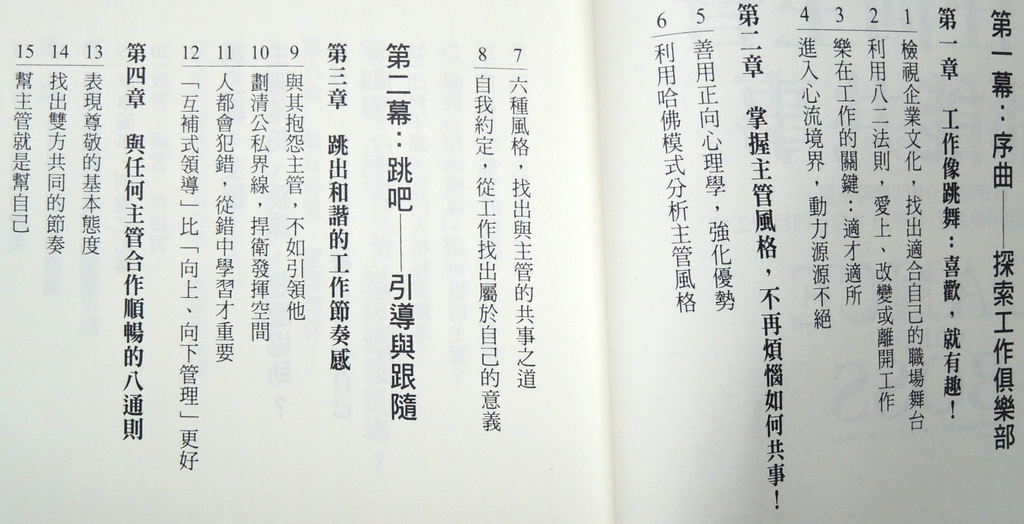 第一幕：序曲——探索工作俱樂部
第一章　工作像跳舞：喜歡，就有趣！
1 檢視企業文化，找出適合自己的職場舞台
2 利用八二法則，愛上、改變或離開工作
3 樂在工作的關鍵：適才適所
4 進入心流境界，動力源源不絕
第二章　掌握主管風格，不再煩惱如何共事！
5 善用正向心理學，強化優勢
6 利用哈佛模式分析主管風格
7 六種風格，找出與主管的共事之道
8 自我約定，從工作找出屬於自己的意義
第二幕：跳吧——引導與跟隨
第三章　跳出和諧的工作節奏感
9 與其抱怨主管，不如引領他
10 劃清公私界線，捍衛發揮空間
11 人都會犯錯，從錯中學習才重要
12 「互補式領導」比「向上、向下管理」更好
第四章　與任何主管合作順暢的八通則
13 表現尊敬的基本態度
14 找出雙方共同的節奏
15 幫主管就是幫自己